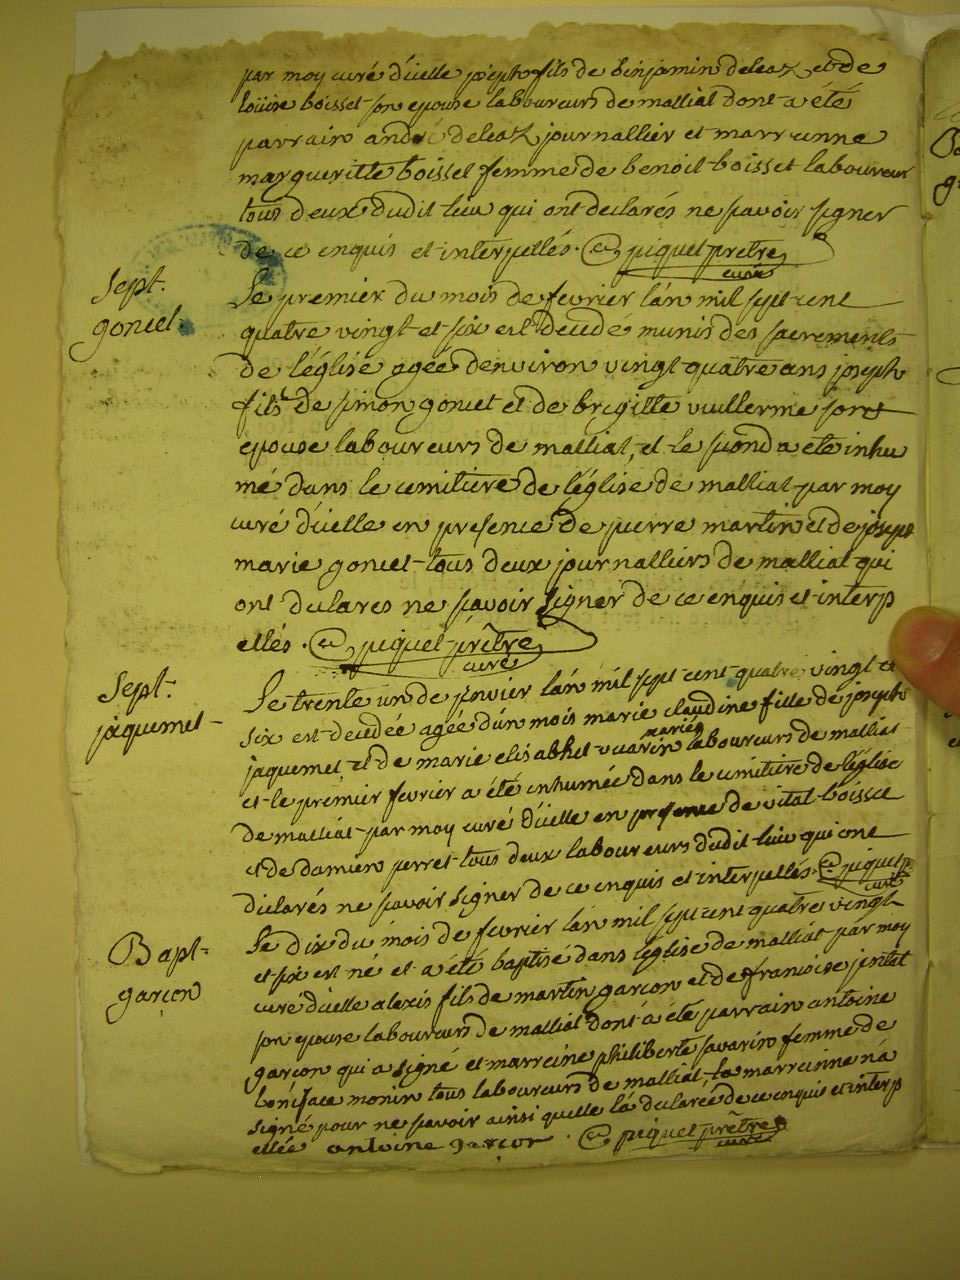 par moy curé d'icelle joseph fils de binjamin deleaz et de
loüise boisset son epouse laboureurs de malliat dont a été
parrain andré deleaz journallier et marrainne
margueritte boisset femme de benoit boisset laboureur
tous deux dudit lieu qui ont declarés ne savoir signer
de ce enquis et interpellés. piquet prêtre
curé
Sept.
goncet.
Le premier du mois de fevrier l'an mil sept cent
quatre vingt et six est decedé munis des sacrements
de l'église agée d'environ vingt quatre ans joseph
fils de simon goncet et de brigitte vuillerme son
epouse laboureurs de malliat, et le second a eté inhu
mé dans le cemitière de l'église de malliat par moy
curé d'icelle en presence de pierre martin et de joseph
marie goncet tous deux journalliers de malliat qui
ont declarés ne savoir signer de ce enquis et interp
ellés. piquet prêtre
curé
Sept.
jaquemet
Le trente un de janvier l'an mil sept cent quatre vingt et
six est decedée agée d'un mois marie claudine fille de joseph
jaquemet et de marie elisabhet mariés laboureurs de malliat
et le premier fevrier a été inhumée dans le cemitière de l'église
de malliat par moy curé d'icelle en presence de vital boisset
et de damien perret tous deux laboureurs dudit lieu qui ont
declarés ne savoir signer de ce enquis et interpellés. piquet p.
curé
Bapt.
garçon
Le dix du mois de fevrier l'an mil sept cent quatre vingt
et six est né et a été baptisé dans l'église de malliat par moy
curé d'icelle alexis fils de martin garçon et de francoise
son epouse laboureurs de malliat dont a été parrain antoine
garçon qui a signé et marreine philiberte savarin femme de
boniface monin tous laboureurs de malliat, la marreinne n'a
signé pour ne savoir ainsi quelle l'a declarée de ce enquis et interp
ellée antoine garçon. piquet prêtre
curé